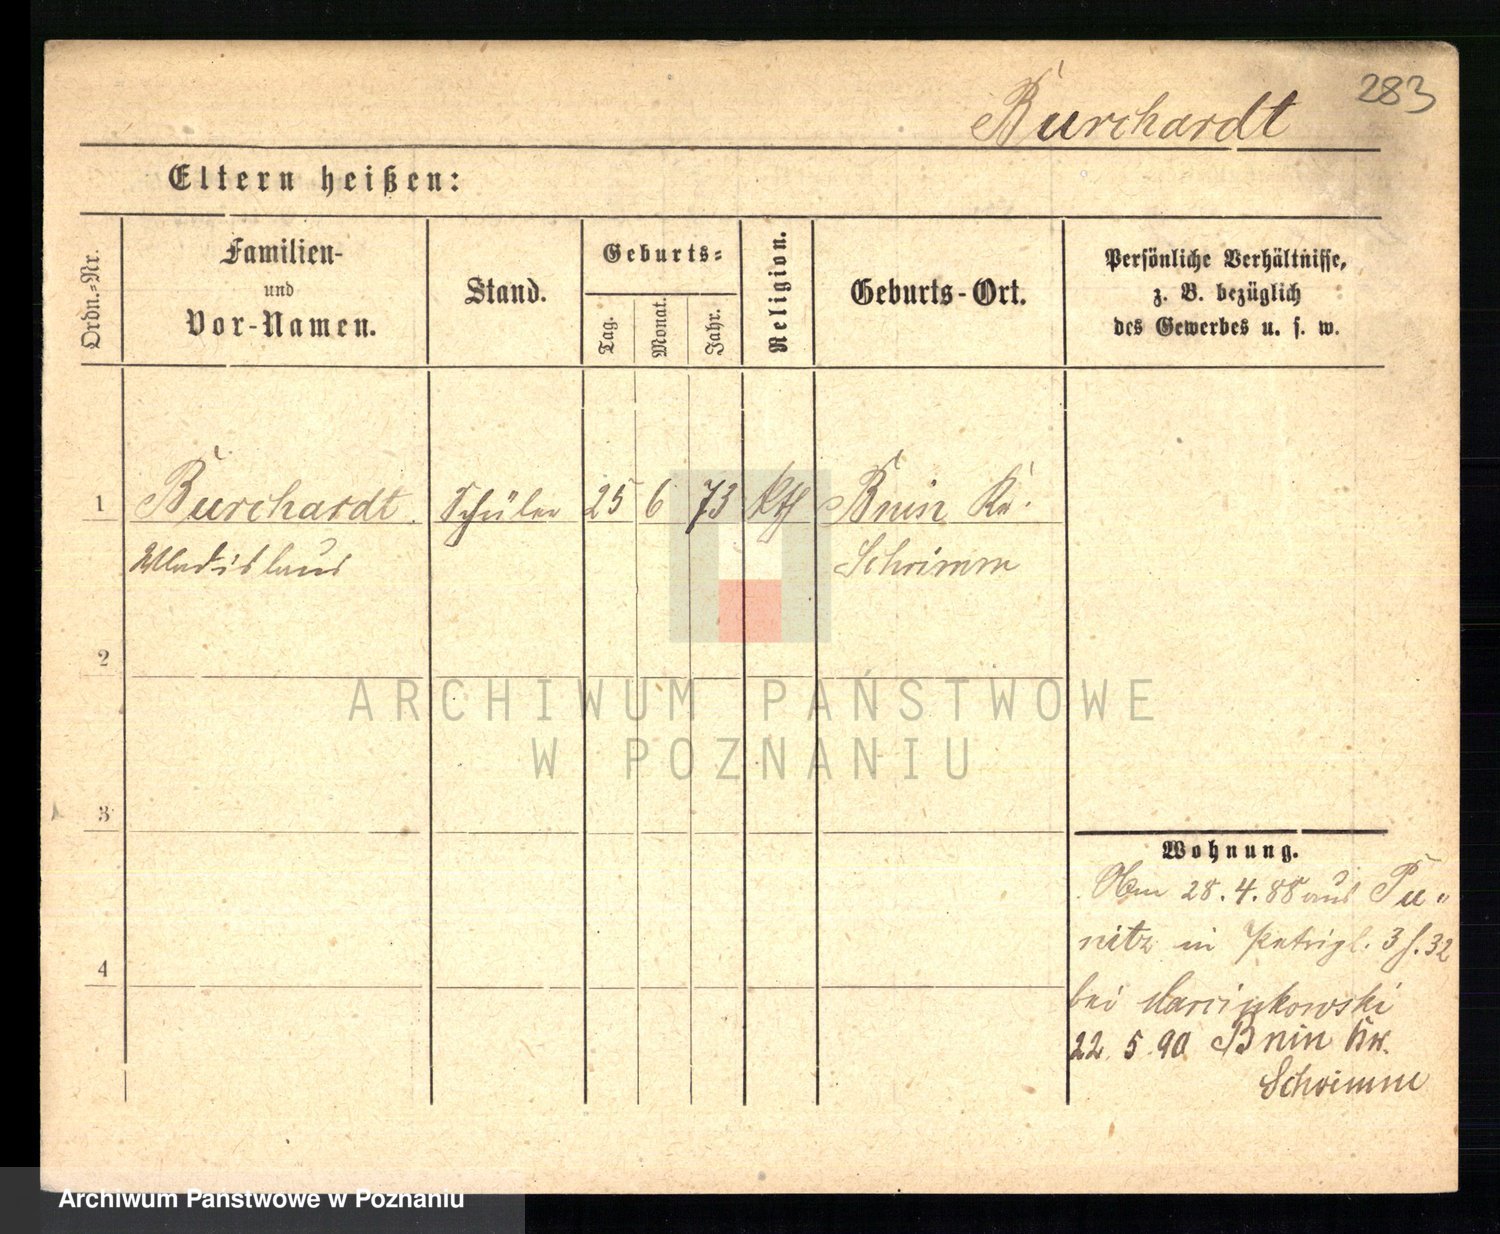 283
Burchardt
Eltern heißen:
Ordn.-Nr.
Familien-
und
Vor-Namen.
Stand.
Geburts-
Tag.
Monat.
Jahr.
Religion.
Geburts-Ort.
Persönliche Verhältnisse,
z. B. bezüglich
des Gewerbes u. s. w.
1 Burchardt Schüler 25 6 73 kth Bnin Kr.
Wladislaus Schrimm
2
ARCHIWUM PAŃSTWOWE
W POZNANIU
3
Wohnung.
28.4.88 aus Pu-
nitz in Petripl. 3 b. 32
bei Marcinkowski
4
22.5.90 Bnin Kr.
Schrimm
Archiwum Państwowe w Poznaniu